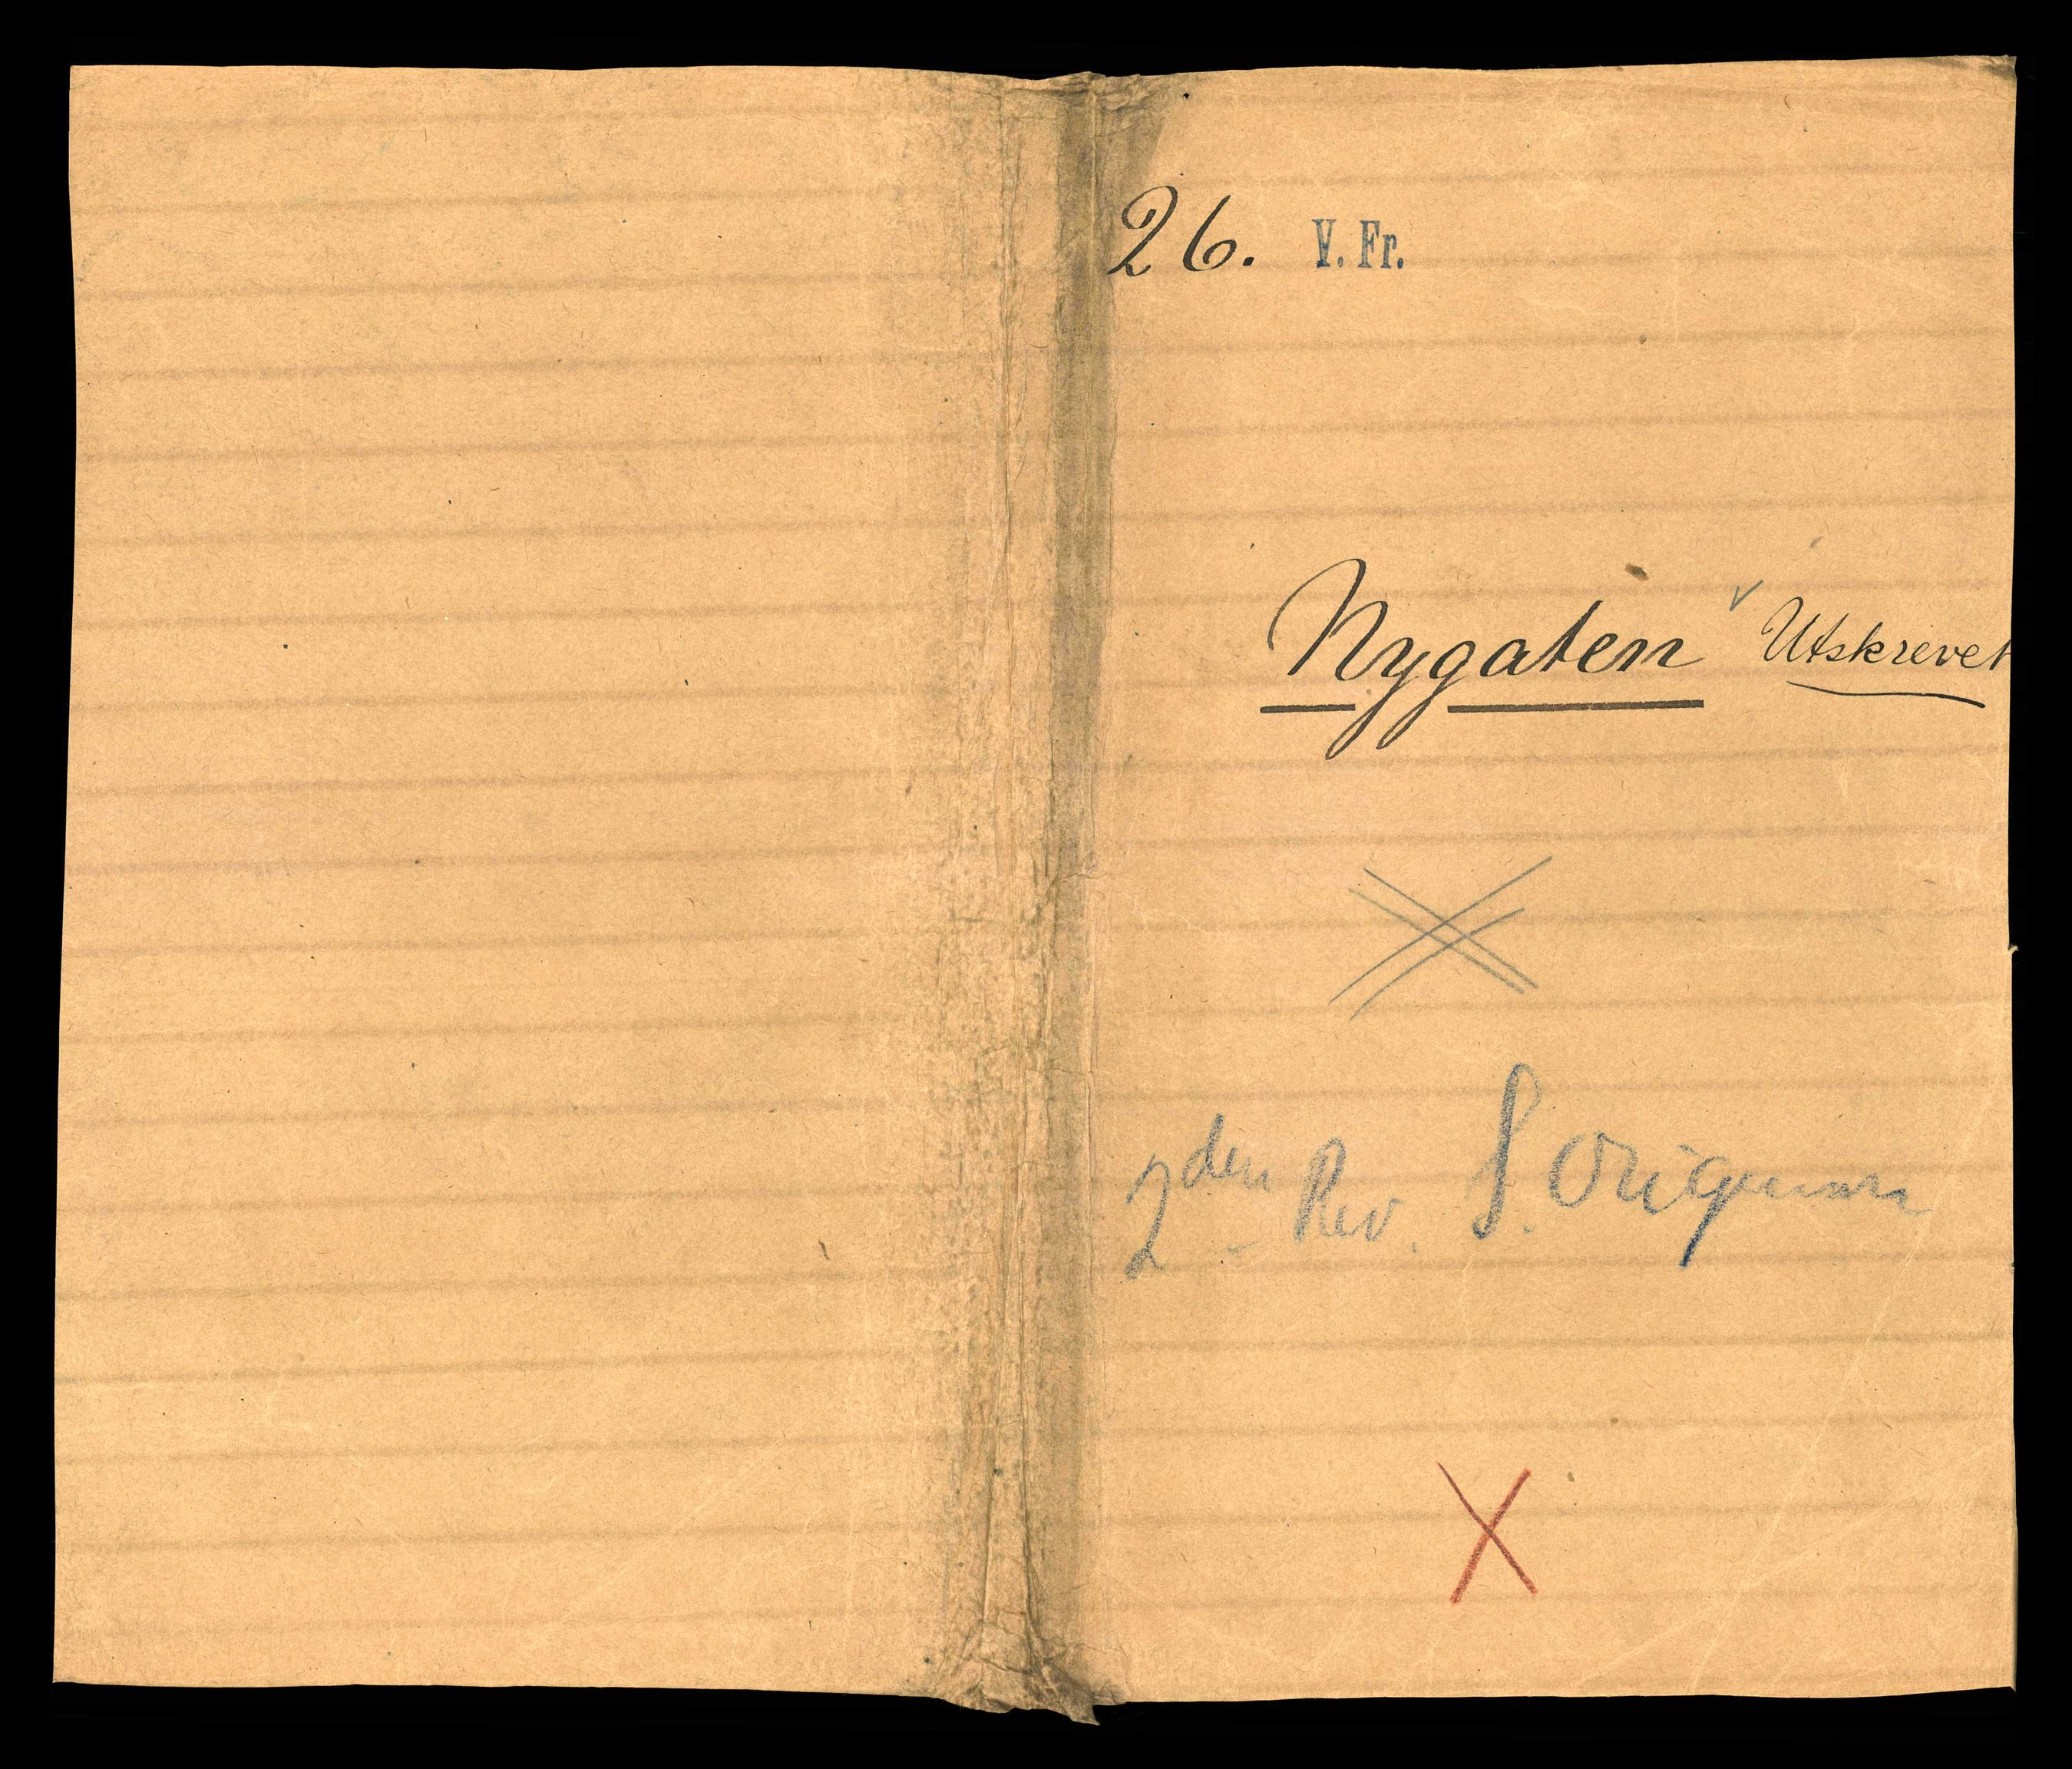 26. V. Fr.
Nygaten Utskrevet
2den Rev.